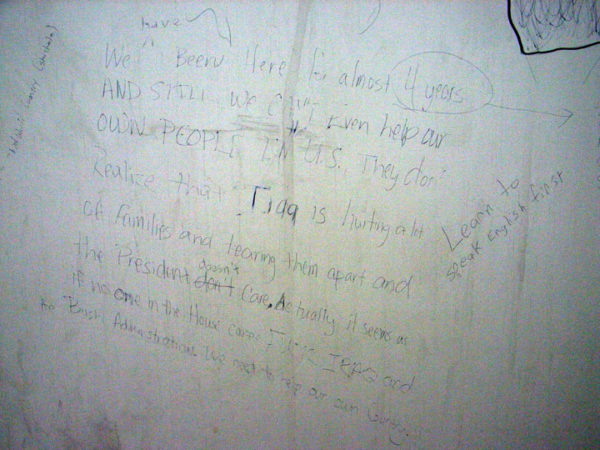 have
We Been Here for almost 4 years
AND STILL we can't Even help our
OWN PEOPLE IN U.S., They don't
Realize that Iraq is hurting a lot
of Families and tearing them apart and
the President don't doesn't Care. Actually it seems as
if no one in the House cares. and
Bush Administrations. We need to help our own Country.
Learn to
speak English first